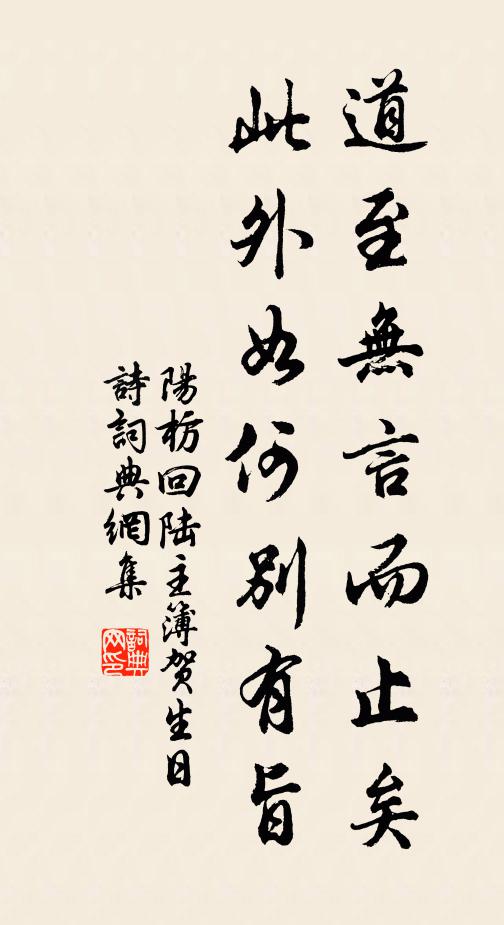 道至無言而止矣
此外如何別有旨
陽枋回陸主簿賀生日
詩詞典網集
詞典
网印